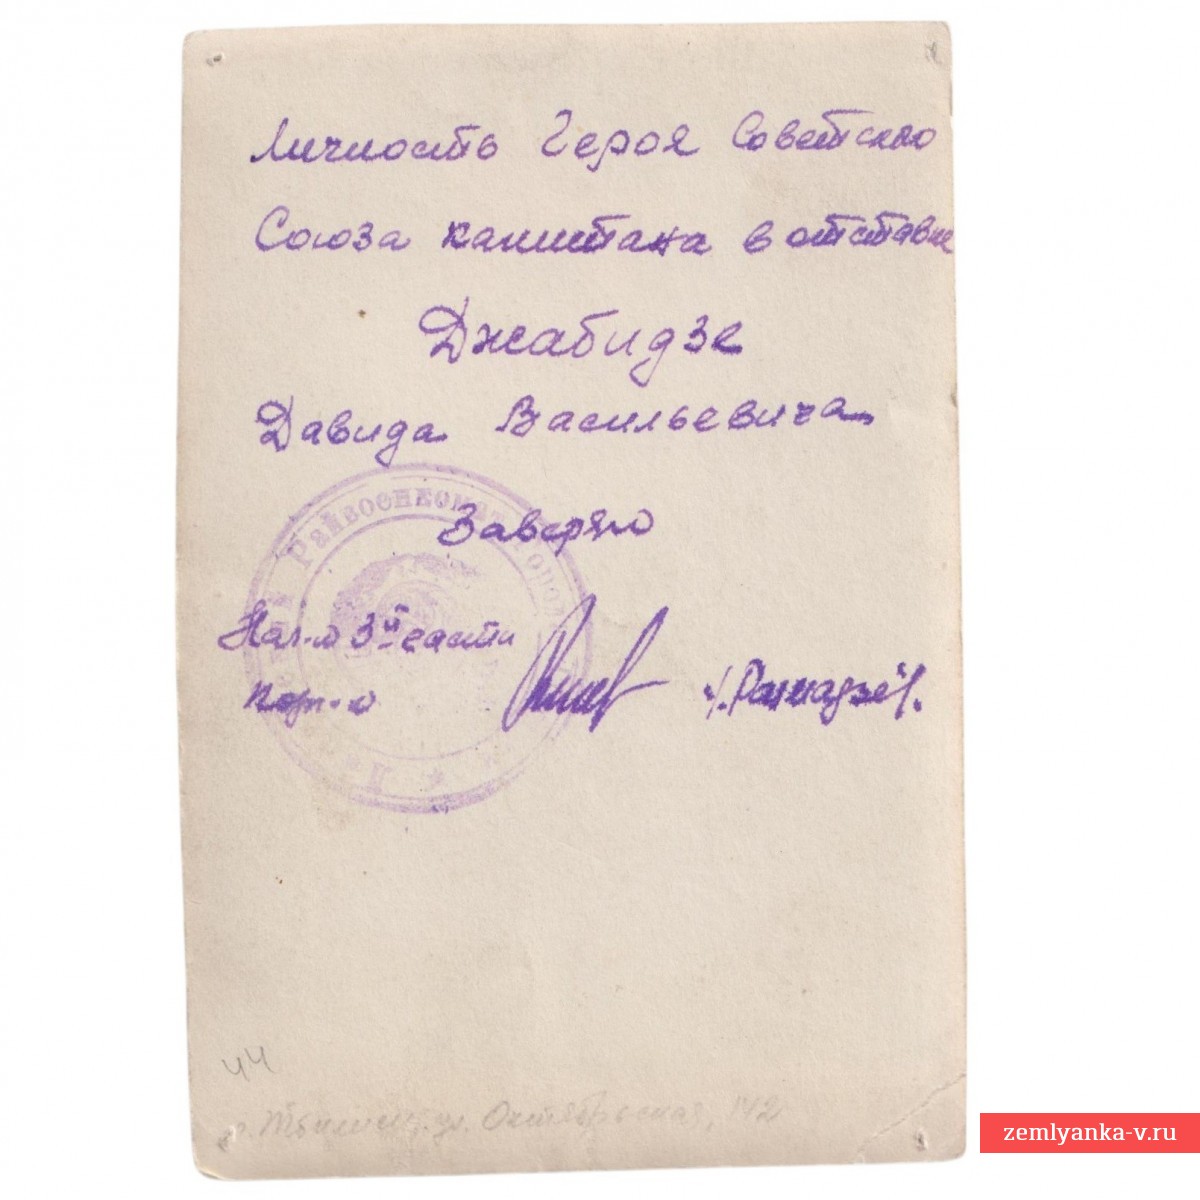 Личность Героя Советского
Союза капитана в отставке
Джабидзе
Давида Васильевича
Заверяю
Райвоенкомат Горо
Нач-к 3й части
/.Рамадзе/.
44
г. Тбилиси ул. Октябрьская, 142
zemlyanka-v.ru